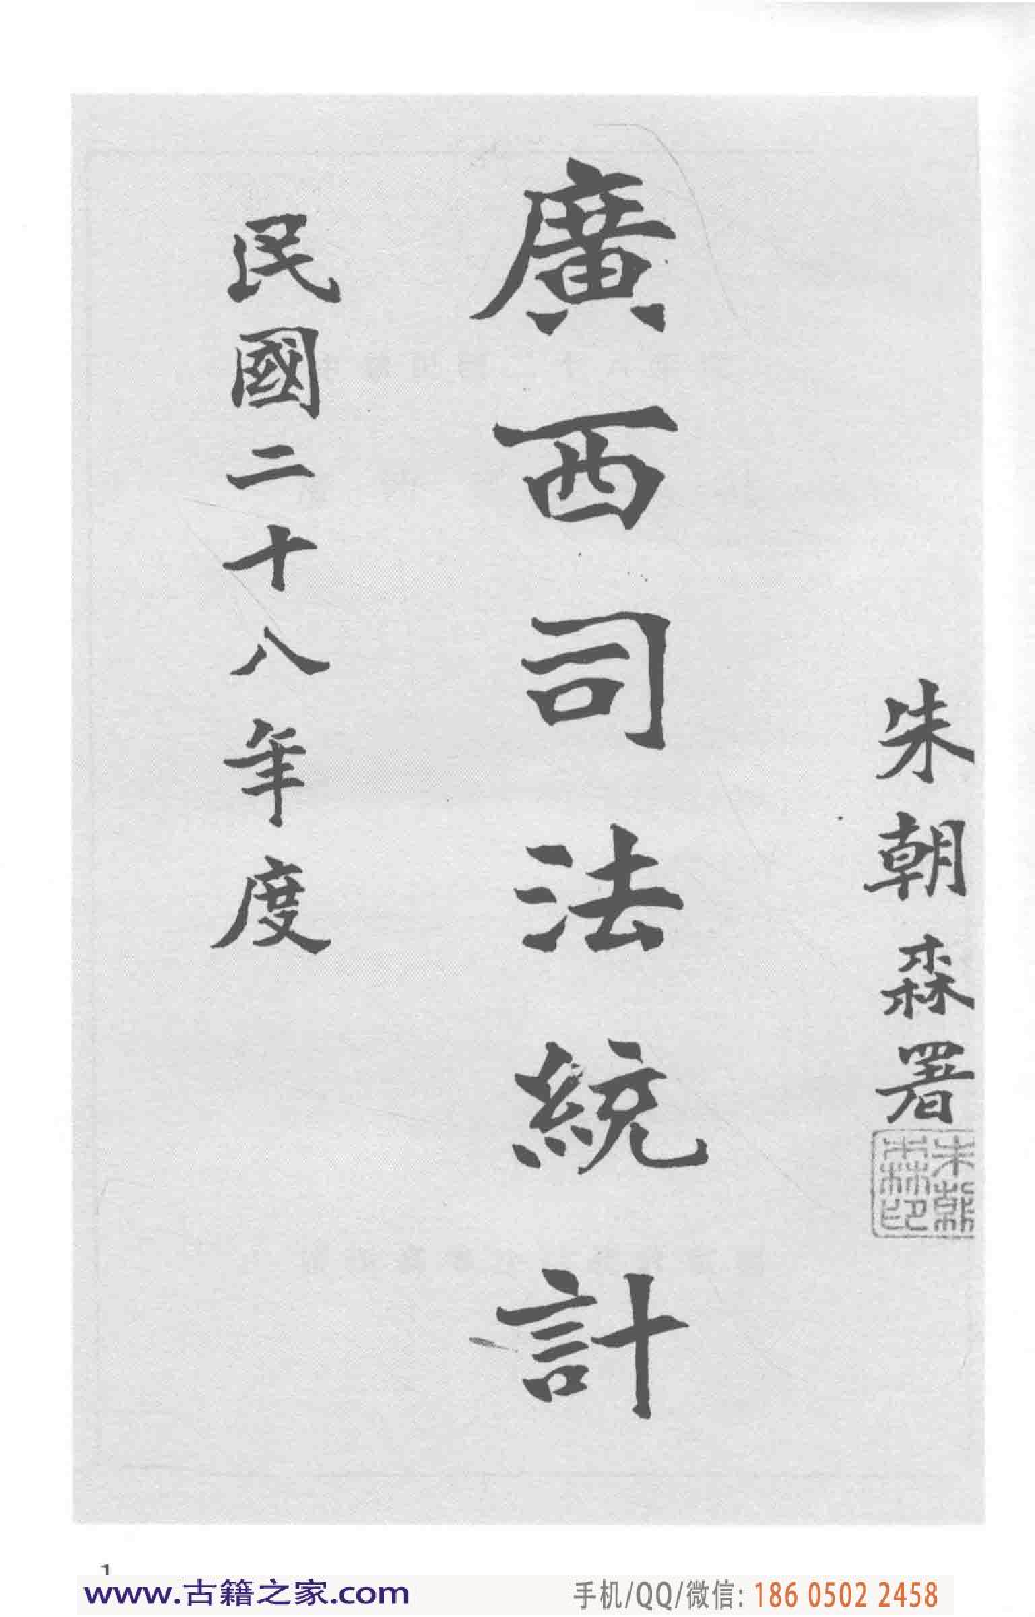 朱朝森署
朱朝森印
廣西司法統計
民國二十八年度
1
www.古籍之家.com
手机/QQ/微信: 186 0502 2458